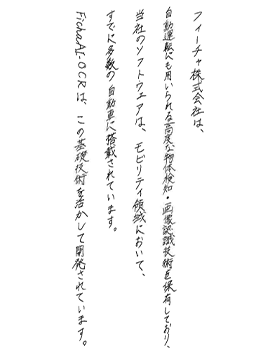 フィーチャ株式会社は、
自動運転にも用いられる高度な物体検知・画像認識技術を保有しており、
当社のソフトウエアは、モビリティ領域において、
すでに多数の自動車に搭載されています。
FichaAI-OCRは、この基礎技術を活かして開発されています。